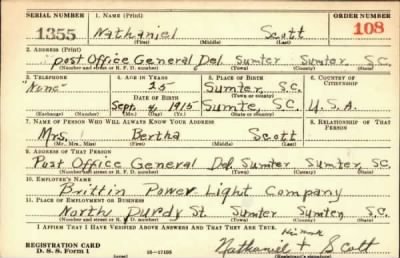 SERIAL NUMBER 1. NAME (Print) ORDER NUMBER
1355 Nathaniel Scott 108
(First) (Middle) (Last)
2. ADDRESS (Print)
Post Office General Del. Sumter Sumter, S.C.
(Number and street or R. F. D. number) (Town) (County) (State)
3. TELEPHONE 4. AGE IN YEARS 5. PLACE OF BIRTH 6. COUNTRY OF CITIZENSHIP
"None" 25 Sumter, S.C.
(Town or county)
DATE OF BIRTH
Sept. 4, 1915 Sumte, S.C. U.S.A.
(Exchange) (Number) (Mo.) (Day) (Yr.) (State or country)
7. NAME OF PERSON WHO WILL ALWAYS KNOW YOUR ADDRESS 8. RELATIONSHIP OF THAT PERSON
Mrs. Bertha Scott
(Mr., Mrs., Miss) (First) (Middle) (Last)
9. ADDRESS OF THAT PERSON
Post Office General Del. Sumter Sumter, S.C.
(Number and street or R. F. D. number) (Town) (County) (State)
10. EMPLOYER'S NAME
Brittin Power Light Company
11. PLACE OF EMPLOYMENT OR BUSINESS
North Purdy St. Sumter Sumter, S.C.
(Number and street or R. F. D. number) (Town) (County) (State)
I AFFIRM THAT I HAVE VERIFIED ABOVE ANSWERS AND THAT THEY ARE TRUE.
His mark
REGISTRATION CARD Nathaniel + Scott
D. S. S. Form 1 16—17105 (Registrant's signature)
(over)